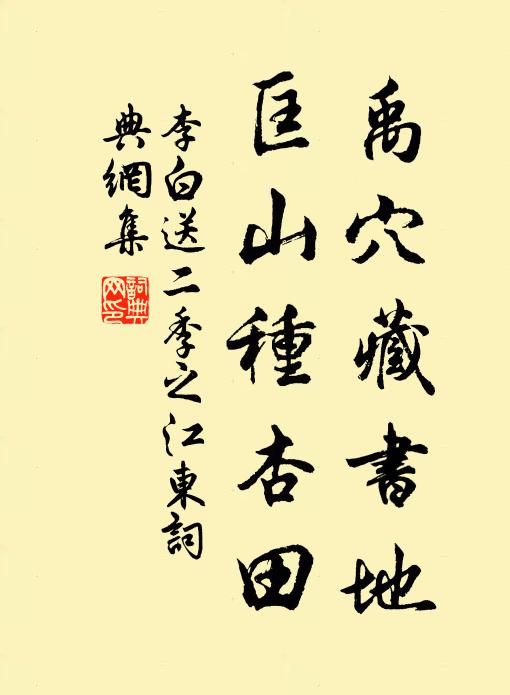 禹穴藏書地
匡山種杏田
李白送二季之江東詞
典網集
詞典
网印